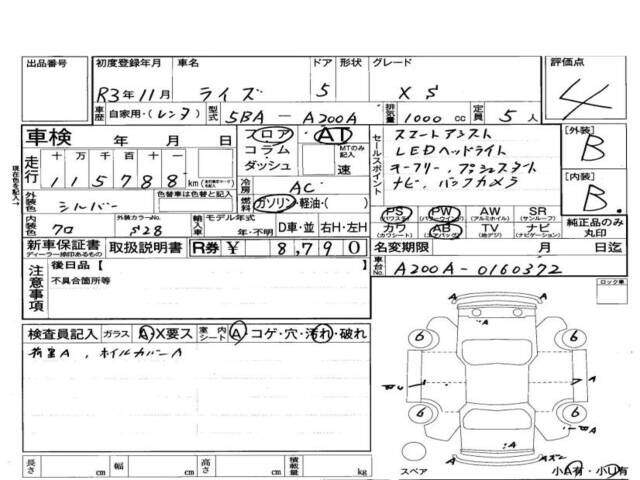 出品番号 初度登録年月 車名 ドア 形状 グレード 評価点
R3年11月 ライズ 5 XS 4
車歴 自家用・(レンタ) 型式 5BA-A200A 排気量 1000 cc 定員 5人
車検 年 月 日 フロア AT
コラム MTのみ記入
ダッシュ 速
セールスポイント
スマートアシスト
LEDヘッドライト
キーフリー、プッシュスタート
ナビ、バックカメラ
[外装] B
[内装] B
純正品のみ丸印
現在色を記入→
走行 十 万 千 百 十 一
115788 km
外装色 元色 色替車は色替と記入
シルバー
冷房 AC
燃料 ガソリン・軽油・( )
PS (パワステ) PW (パワーウインド) AW (アルミホイル) SR (サンルーフ)
カワ (カワシート) AB (エアバッグ) TV (地デジ) ナビ (ナビゲーション)
内装色 クロ 外装カラーNo. S28 輸入車 モデル年式 年・不明 D車・並 右H・左H
新車保証書 ディーラー捺印あるもの 取扱説明書 R券 ¥ 8,790 名変期限 月 日迄
注意事項 後日品【
不具合箇所等
車台No. A200A-0160372
ロック車
検査員記入 ガラス A・X要ス 室内 シート A・コゲ・穴・汚れ・破れ
荷室A、ホイルカバーA
6 6
A A
6 6
A
A
スペア
小A有・小U有
長さ cm 幅 cm 高さ cm 積載量 kg